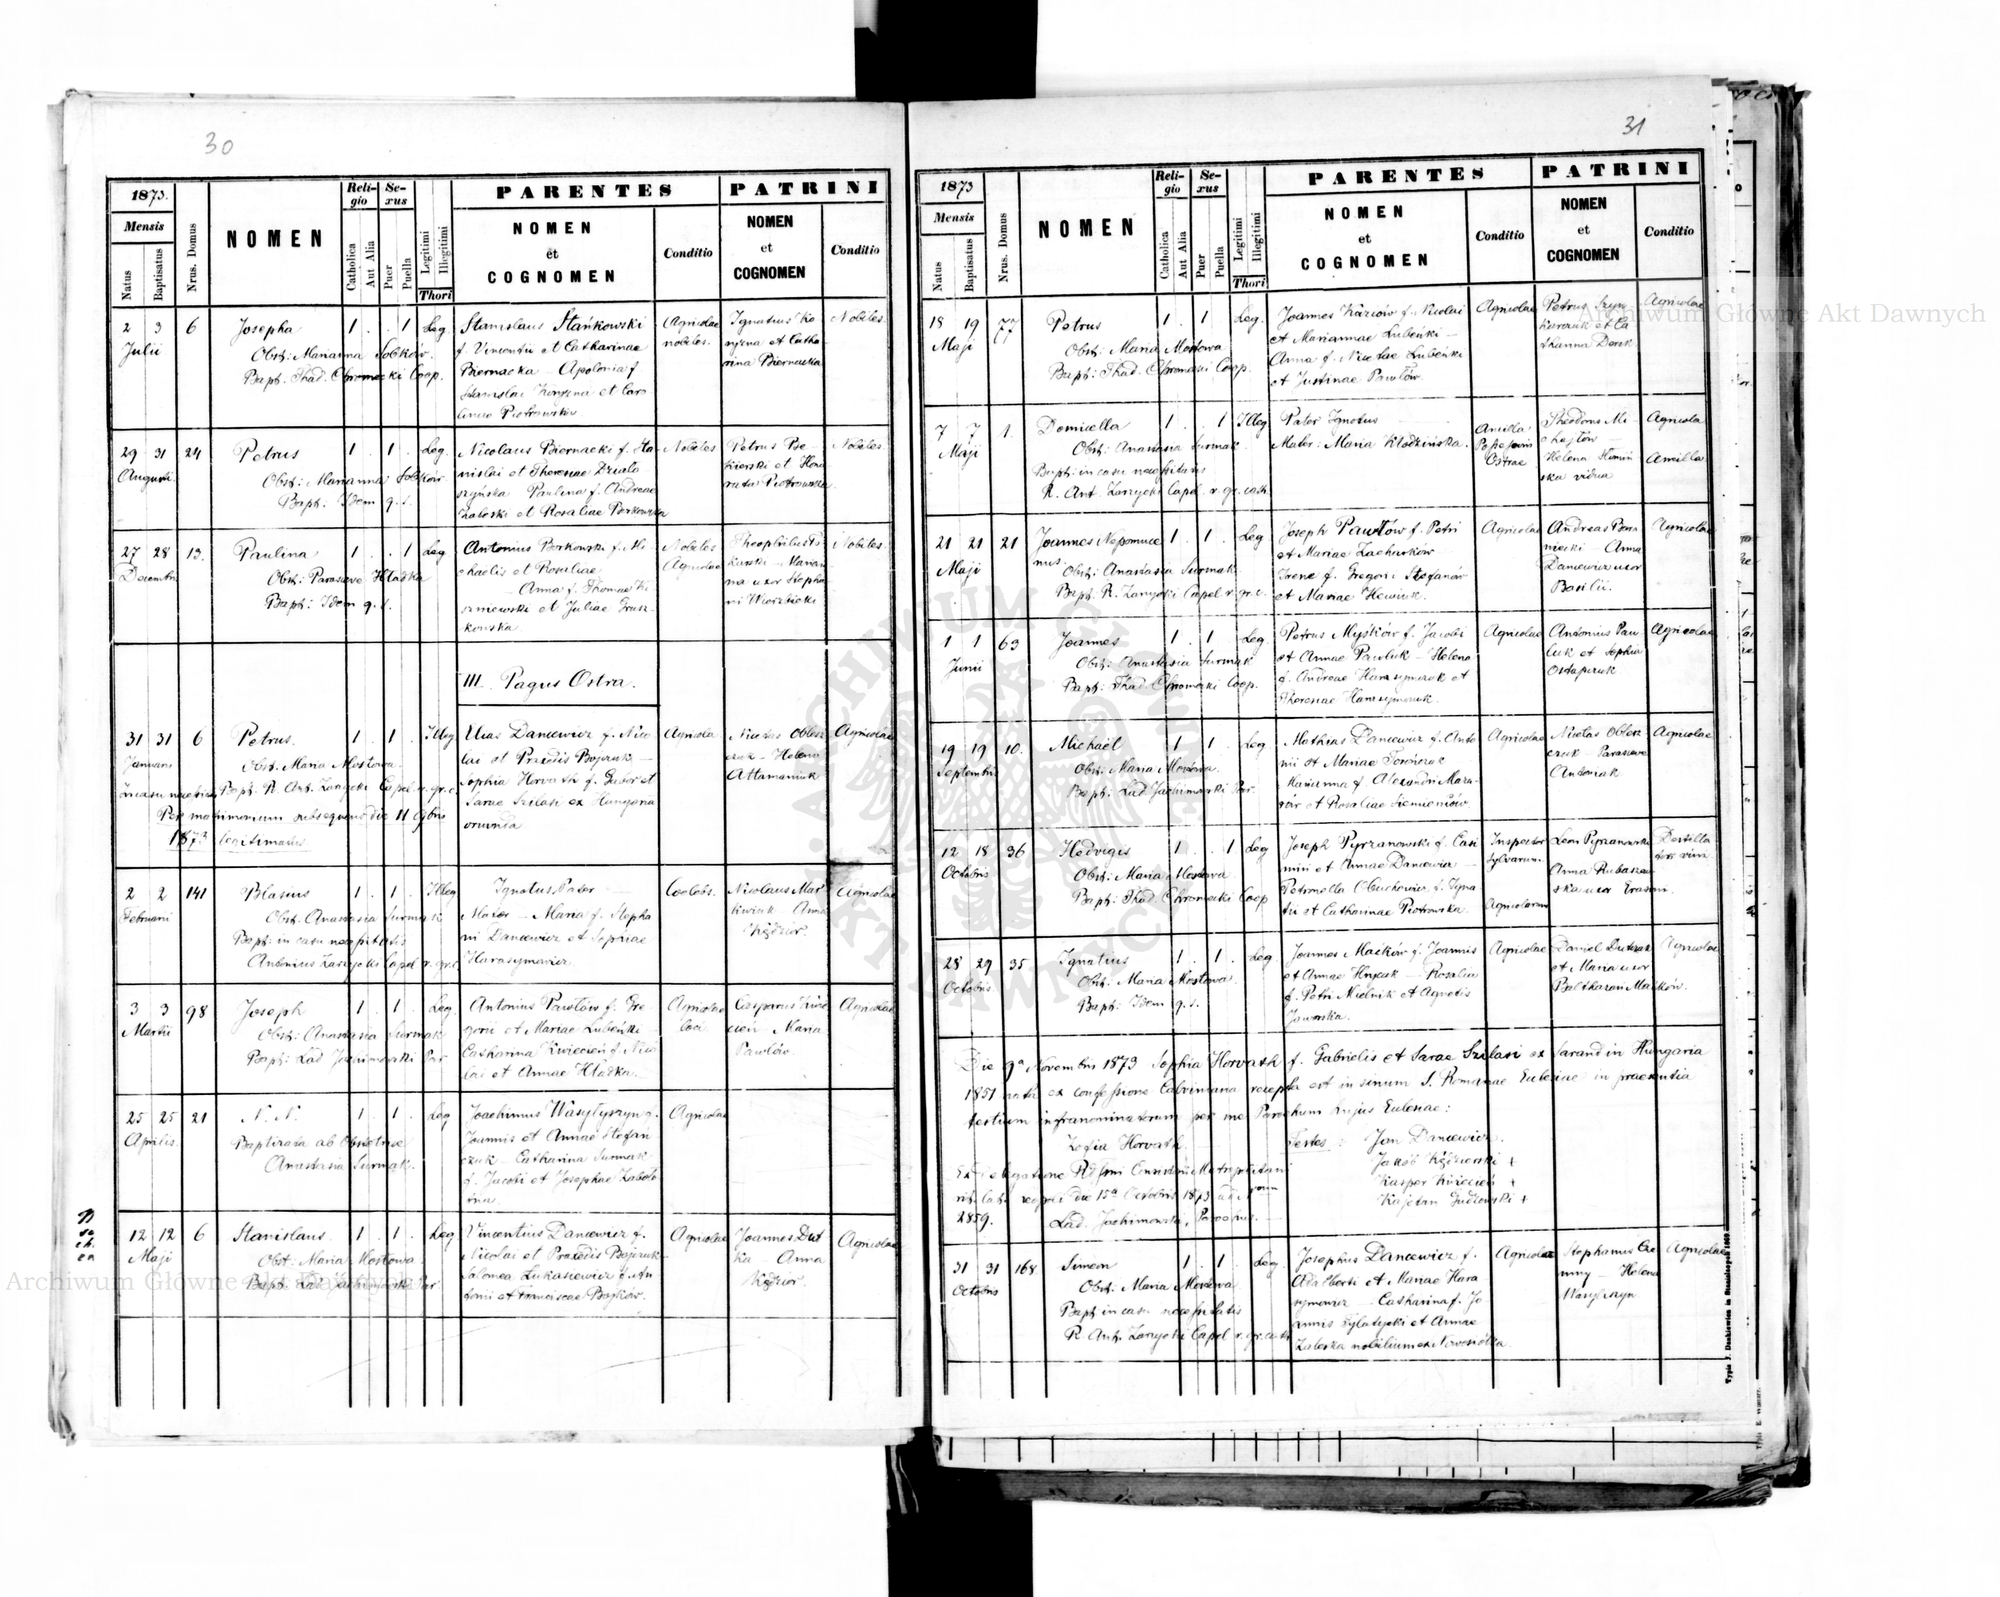 30
1873.
Mensis
Natus
Baptisatus
Nrus. Domus
NOMEN
Religio
Catholica
Aut Alia
Sexus
Puer
Puella
Legitimi
Illegitimi
Thori
PARENTES
NOMEN
et
COGNOMEN
Conditio
PATRINI
NOMEN
et
COGNOMEN
Conditio
2 3 6 Josepha 1 . . 1 Leg.
Julii
Obst: Marianna Sobków.
Bapt. Thad. Chromecki Coop.
Stanislaus Stańkowski
f. Vincentii et Catharinae
Biernacka – Apolonia f.
Stanislai et
Piotrowska
Agricolae
nobiles.
Ignatius
et Catha-
rina Biernacka
Nobiles.
29 31 24 Petrus 1 . 1 . Leg.
Augusti.
Obst: Marianna Sobków
Bapt: Idem q. s.
Nicolaus Biernacki f. Sta-
nislai et Theresae
Paulina f. Andreae
Zaleski et Rosaliae Borkowska
Nobiles
Petrus
et Hono-
rata Piotrowska
Nobiles.
27 28 13. Paulina 1 . . 1 Leg.
Decembris
Obst: Parasceve Hladka
Bapt: Idem q. s.
Antonius Borkowski f. Mi-
chaelis et Rosaliae
– Anna f. Thomae
et Juliae Grusz-
kowska
Nobiles
Agricolae
– Marian-
na uxor Stepha-
ni Wierzbicki
Nobiles.
III. Pagus Ostra.
31 31 6 Petrus. 1 . 1 . Illeg.
Januarii
Obst. Maria Mostowa.
In casu necessit. Bapt. R. Ant. Zarzycki Capel. r. gr. c.
Per matrimonium subsequens die 11 9bris
1873 legitimatus.
Elias Dancewicz f. Nico-
lai et Praxedis Bojczuk –
Sophia Horvath f. Gabor et
Sarae Szilasi ex Hungaria
oriunda.
Agricola
Nicolas
– Helena
Attamaniuk
Agricolae
2 2 141 Blasius 1 . 1 . Illeg.
Februarii
Obst. Anastasia Surmak
Bapt: in casu necessitatis
Antonius Zarzycki Capel. r. gr. c.
Ignotus Pater –
Mater – Maria f. Stepha-
ni Dancewicz et Sophiae
Harasymowicz
Coelebs.
Nicolaus Mar-
Anna
Agricolae
3 3 98 Joseph 1 . 1 . Leg.
Martii
Obst: Anastasia Surmak
Bapt: Lad Jachimowski Par
Antonius Pawłów f. Gre-
gorii et Mariae Lubeński –
Catharina Kwiecień f. Nico-
lai et Annae Hladka.
Agricolae
loci.
Casparus Kwie-
cień Maria
Pawłów.
Agricolae
25 25 21 N. N. 1 . 1 . Leg.
Aprilis.
Baptizata ab Obstetrice
Anastasia Surmak.
Joachimus Wasylyszyn f.
Joannis et Annae Stefań-
czuk – Catharina Surmak
f. Jacobi et Josephae Zabolo-
tna
Agricolae
12 12 6 Stanislaus 1 . 1 . Leg.
Maji
Obst: Maria Mostowa.
Bapt. Lad. Jachimowski Par
Vincentius Dancewicz f.
Nicolai et Praxedis Bojczuk –
Salomea Łukasiewicz f. An-
tonii et Franciscae Bojków.
Agricolae
Joannes Dut-
ka Anna
Agricolae
31
1873
Mensis
Natus
Baptisatus
Nrus. Domus
NOMEN
Religio
Catholica
Aut Alia
Sexus
Puer
Puella
Legitimi
Illegitimi
Thori
PARENTES
NOMEN
et
COGNOMEN
Conditio
PATRINI
NOMEN
et
COGNOMEN
Conditio
18 19 77 Petrus 1 . 1 Leg.
Maji
Obst: Maria Mostowa
Bapt: Thad. Chromecki Coop.
Joannes Karłów f. Nicolai
et Mariannae Lubeński –
Anna f. Nicolae Lubeński
et Justinae Pawłów.
Agricolae
Petrus Szym-
et Ca-
tharina
Agricolae
7 7 1. Domicella 1 . . 1 Illeg
Maji
Obst: Anastasia Surmak
Bapt: in casu necessitatis
R. Ant. Zarzycki Capel. r. gr. cath.
Pater Ignotus –
Mater: Maria Kłodzińska.
Ancilla
Ostrae
Theodorus Mi-
chajłów –
Helena
vidua
Agricola
Ancilla
21 21 21 Joannes Nepomuce- 1 . 1 . Leg
Maji
nus.
Obst: Anastasia Surmak
Bapt: R. Zarzycki Capel. r. gr. c.
Joseph Pawłów f. Petri
et Mariae Zacharków
Irene f. Gregorii Stefanów
et Mariae Hewiuk.
Agricolae
Andreas
Anna
Dancewicz uxor
Basilii.
Agricolae
1 1 63 Joannes 1 . 1 . Leg
Junii
Obst: Anastasia Surmak
Bapt: Thad. Chromecki Coop.
Petrus Myśków f. Jacobi
et Annae Pawluk – Helena
f. Andreae Harasymczuk et
Theresae Harasymczuk.
Agricolae
Antonius Paw-
luk et Sophia
Ostapczuk
Agricolae
19 19 10. Michaël 1 . 1 . Leg
Septembris
Obst: Maria Mostowa.
Bapt: Lad Jachimowski Par.
Mathias Dancewicz f. Anto-
nii et Mariae
Marianna f. Alexandri
et Rosaliae
Agricolae
Nicolas
– Parasceve
Antoniak
Agricolae
12 18 36 Hedvigis 1 . . 1 Leg
Octobris
Obst: Maria Mostowa
Bapt: Thad. Chromecki Coop
Joseph Pyrzanowski f. Casi-
miri et Annae Dancewicz –
Petronella Obuchowicz f. Igna-
tii et Catharinae Piotrowska.
Inspector
sylvarum
Agricolarum
Leon Pyrzanowski
Anna
Destilla-
tor vini
28 29 35 Ignatius 1 . 1 . Leg
Octobris
Obst: Maria Mostowa.
Bapt: Idem q. s.
Joannes Maćków f. Joannis
et Annae Hryciuk – Rosalia
f. Petri Mielnik et Agnetis
Jaworska.
Agricolae
Daniel Dutczak
et Maria uxor
Balthazari Maćków.
Agricolae
Die 9a Novembris 1873 Sophia Horvath f. Gabrielis et Sarae Szilasi ex Sarand in Hungaria
1851 nata ex confessione Calviniana recepta est in sinum S. Romanae Ecclesiae in praesentia
testium infranominatorum per me Parochum hujus Ecclesiae:
Zofia Horvath.
Testes: Jan Dancewicz.
Jakób +
Kasper Kwiecień +
Kajetan Gudłowski +
Ex delegatione Rdssmi Consistorii Metropolitani
rit. lat. die 15a Octobris 1873 ad Nrum
2859. Lad. Jachimowski, Parochus.
31 31 168 Simeon 1 . 1 . Leg.
Octobris
Obst. Maria Mostowa.
Bapt in casu necessitatis
R. Ant. Zarzycki Capel. r. gr. cath
Josephus Dancewicz f.
Adalberti et Mariae Hara-
symowicz – Catharina f. Jo-
annis et Annae
Zaleska nobilium ex Nowosiółka.
Agricolae
Stephanus Cze-
– Helena
Wasylyszyn
Agricolae
Typis J. Dankiewicz in Stanislaopoli 1869
Archiwum Główne Akt Dawnych
Archiwum Główne Akt Dawnych